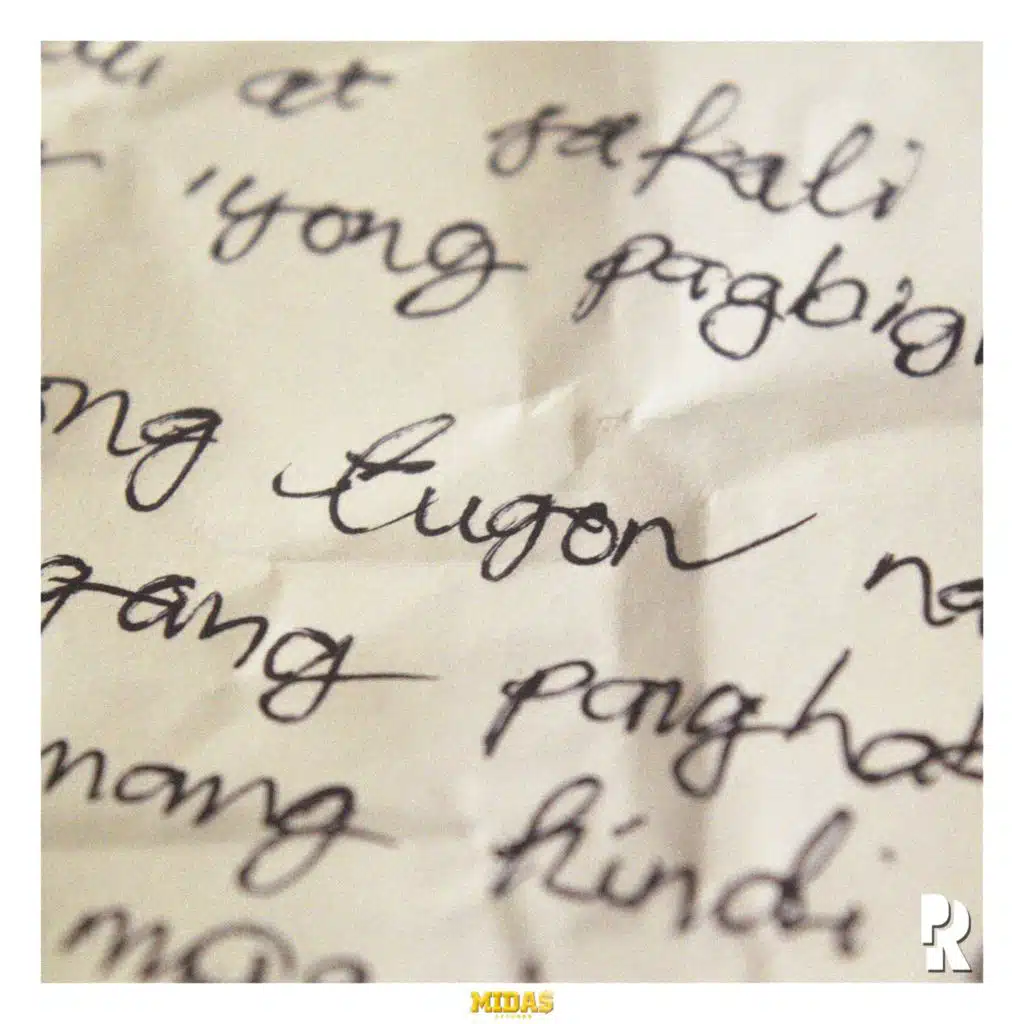 at sakali
'yong pagbig
ng tugon na
gang panghab
mang hindi
mga
PR
MIDA$
RECORDS